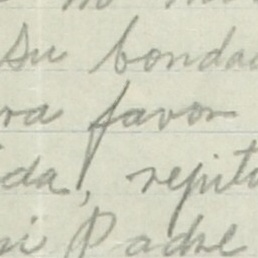 su bondad
ra favor
ida, repito
i Padre